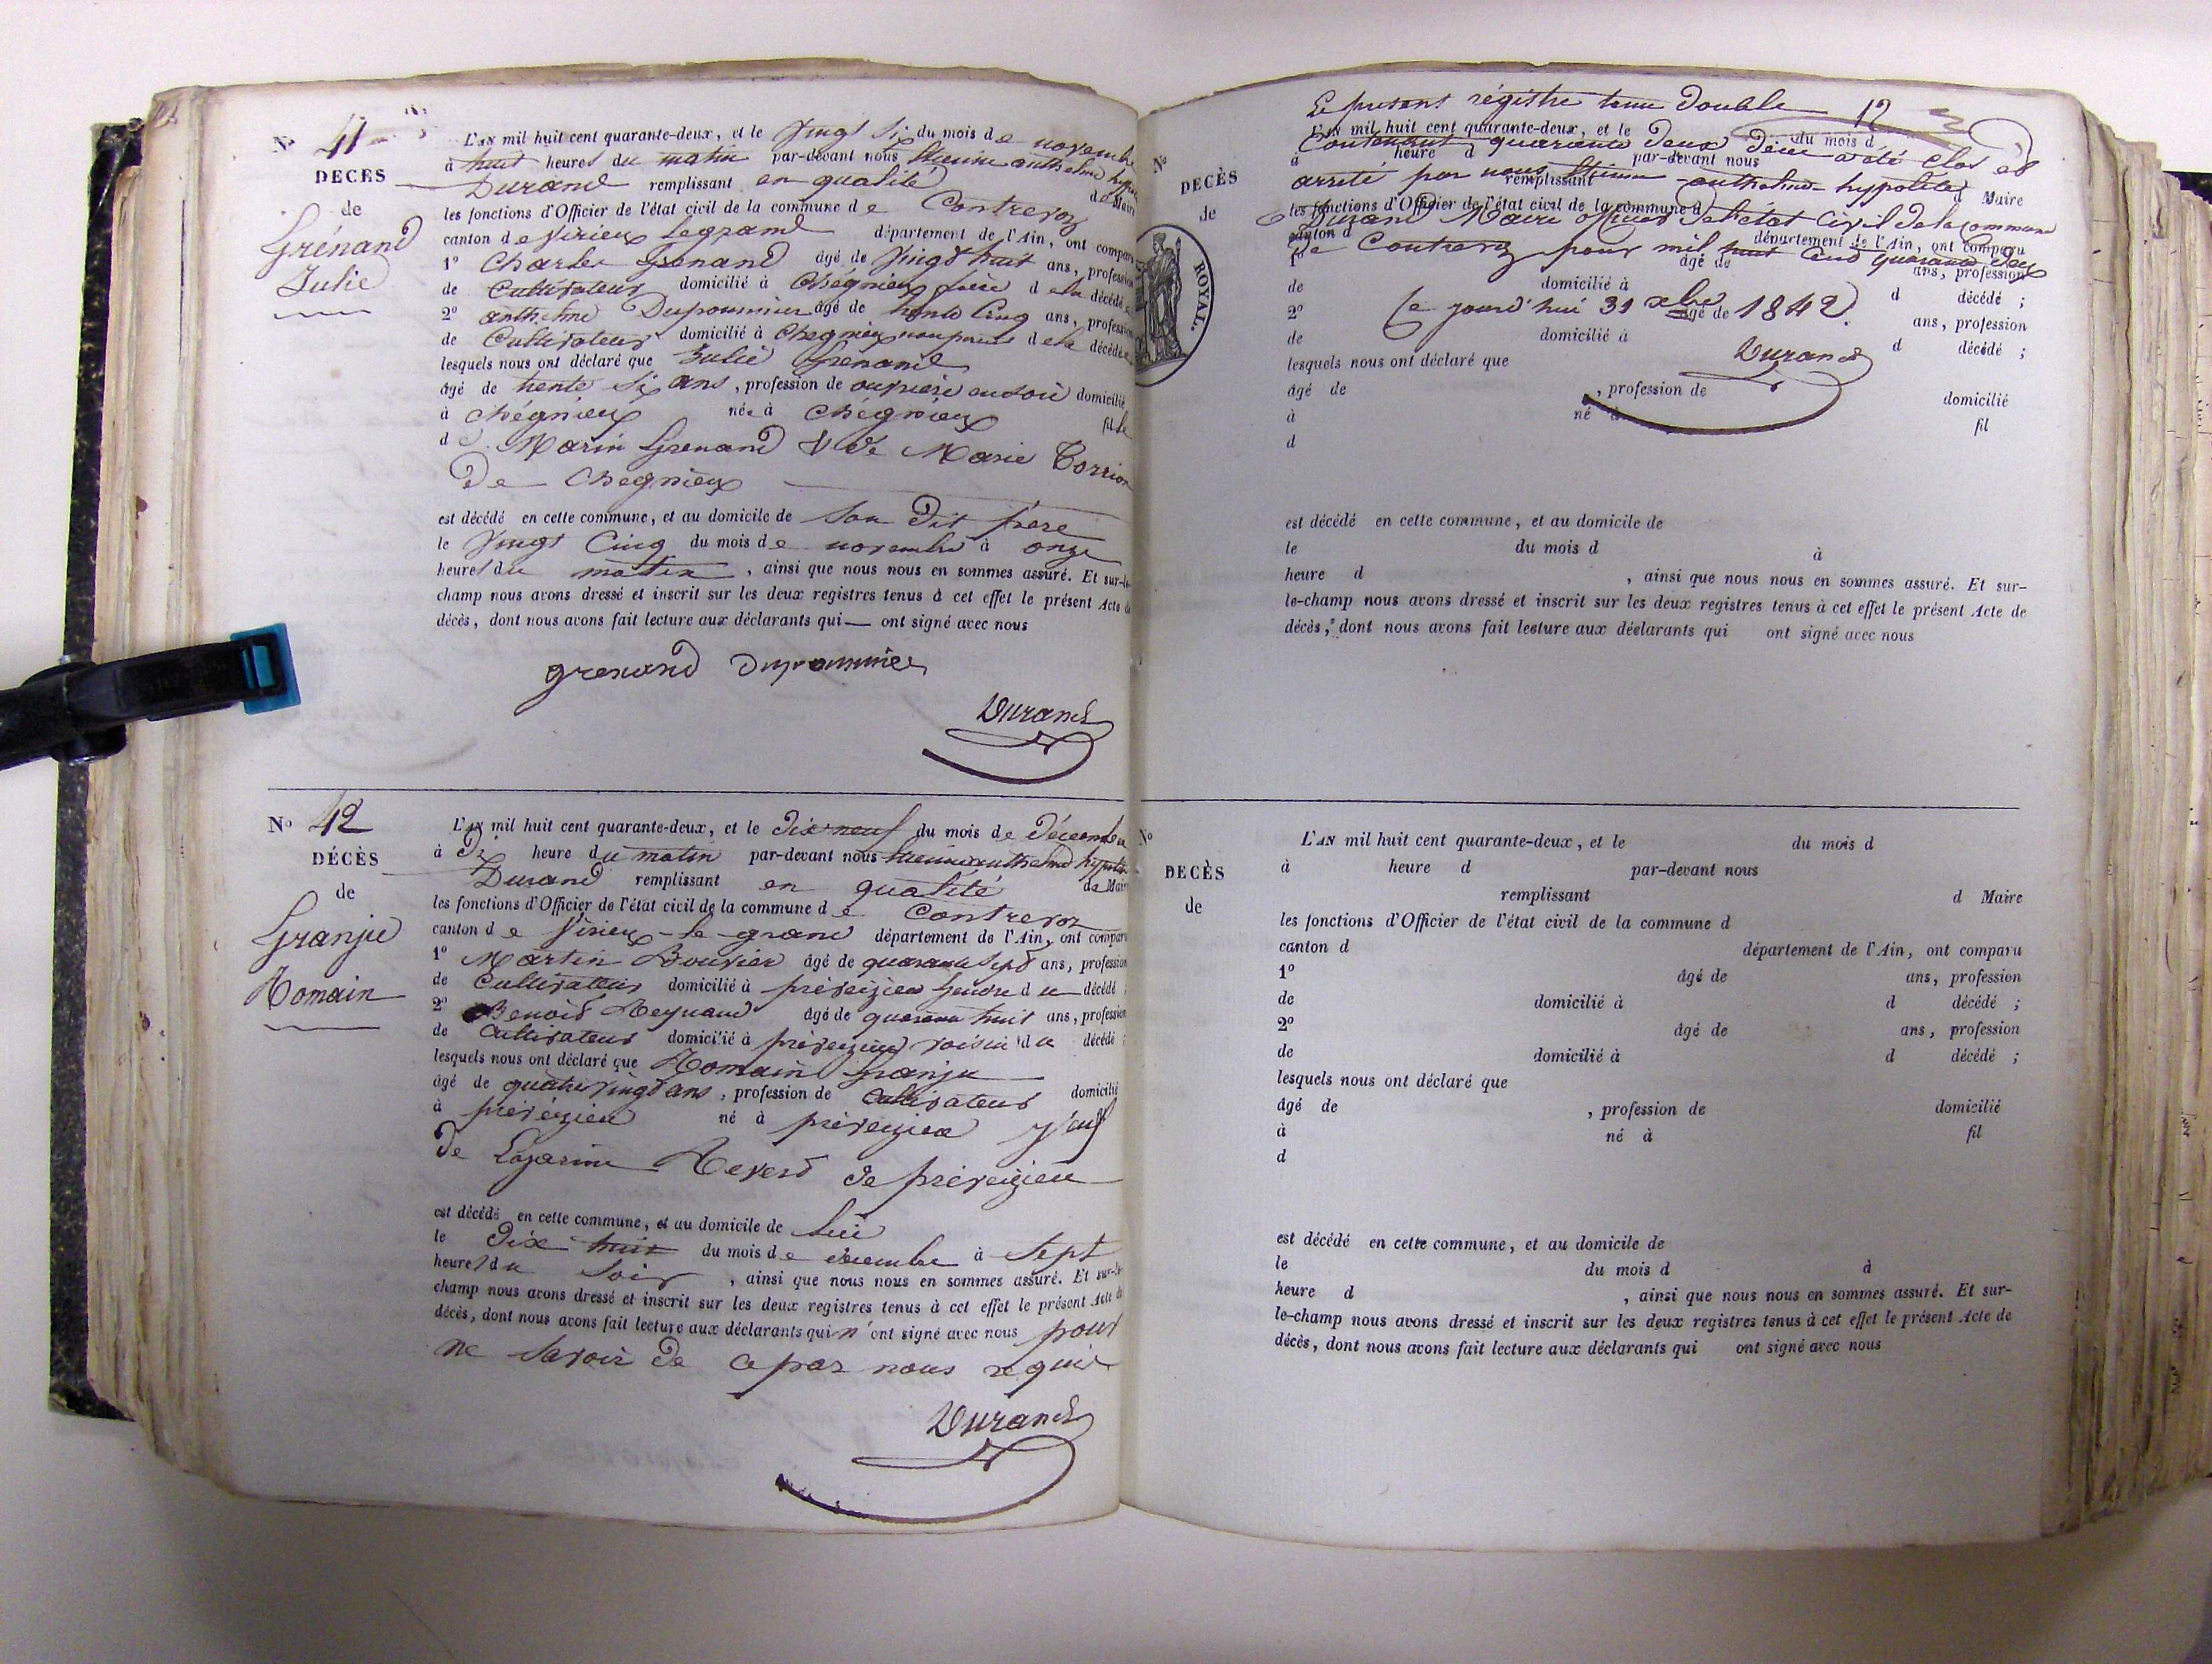 N° 41
DECES
de
Grénand
Julie
L'AN mil huit cent quarante-deux, et le vingt six du mois de novembre
à huit heures du matin par-devant nous Etienne anthelme hypo
Durand remplissant en qualité de Maire
les fonctions d'Officier de l'état civil de la commune de Contrevoz
canton de Virieux Legrand département de l'Ain, ont comparu
1° Charles Grenand âgé de vingt huit ans, profession
de Cultivateur domicilié à Chégnieux frère de la décédée
2° anthelme Dupommier âgé de trente Cinq ans, profession
de Cultivateur domicilié à Chegnieux non parent de la décédée
lesquels nous ont déclaré que Julie Grenand
âgé de trente six ans, profession de ouvrière en soie domicilié
à Chégnieux née à Chégnieux fille
de Marin Grenand & de Marie Torrion
De Chegnieux
est décédé en cette commune, et au domicile de son Dit frere
le vingt Cinq du mois de novembre à onze
heures du matin, ainsi que nous nous en sommes assuré. Et sur-le-
champ nous avons dressé et inscrit sur les deux registres tenus à cet effet le présent Acte de
décès, dont nous avons fait lecture aux déclarants qui — ont signé avec nous
grenand Dupommier
Durand
N° 42
DÉCÈS
de
Granju
Romain
L'AN mil huit cent quarante-deux, et le dix neuf du mois de Décembre
à Dix heure du matin par-devant nous Etienne anthelme hypolite
Durand remplissant en qualité de Maire
les fonctions d'Officier de l'état civil de la commune de Contrevoz
canton de Virieux-le-grand département de l'Ain, ont comparu
1° Martin Bouvier âgé de quarante sept ans, profession
de Cultivateur domicilié à préveizieu Gendre du décédé;
2° Benoit Reynaud âgé de quarante huit ans, profession
de Cultivateur domicilié à préveizieu voisin du décédé;
lesquels nous ont déclaré que Romain Granju
âgé de quatre vingt ans, profession de Cultivateur domicilié
à préveizieu né à préveizieu veuf
De Lazarine Reverd de préveizieu
est décédé en cette commune, et au domicile de lui
le Dix huit du mois de décembre à sept
heures du soir, ainsi que nous nous en sommes assuré. Et sur-le-
champ nous avons dressé et inscrit sur les deux registres tenus à cet effet le présent Acte de
décès, dont nous avons fait lecture aux déclarants qui n'ont signé avec nous pour
ne savoir de ce par nous requis
Durand
12
Le present régistre tenu Double
Contenant quarante deux Décès a été Clos et
arreté par nous Etienne anthelme hypolite
Durand Maire officier de l'état Civil de la Commune
de Contrevoz pour mil huit Cent quarante Deux
Ce jourd'hui 31 xbre 1842.
Durand
ROYAL.
N°
DECÈS
de
L'AN mil huit cent quarante-deux, et le du mois d
à heure d par-devant nous
remplissant d Maire
les fonctions d'Officier de l'état civil de la commune d
canton d département de l'Ain, ont comparu
1° âgé de ans, profession
de domicilié à d décédé;
2° âgé de ans, profession
de domicilié à d décédé;
lesquels nous ont déclaré que
âgé de, profession de domicilié
à né à fil
d
est décédé en cette commune, et au domicile de
le du mois d à
heure d, ainsi que nous nous en sommes assuré. Et sur-
le-champ nous avons dressé et inscrit sur les deux registres tenus à cet effet le présent Acte de
décès, dont nous avons fait lecture aux déclarants qui ont signé avec nous
N°
DECÈS
de
L'AN mil huit cent quarante-deux, et le du mois d
à heure d par-devant nous
remplissant d Maire
les fonctions d'Officier de l'état civil de la commune d
canton d département de l'Ain, ont comparu
1° âgé de ans, profession
de domicilié à d décédé;
2° âgé de ans, profession
de domicilié à d décédé;
lesquels nous ont déclaré que
âgé de, profession de domicilié
à né à fil
d
est décédé en cette commune, et au domicile de
le du mois d à
heure d, ainsi que nous nous en sommes assuré. Et sur-
le-champ nous avons dressé et inscrit sur les deux registres tenus à cet effet le présent Acte de
décès, dont nous avons fait lecture aux déclarants qui ont signé avec nous